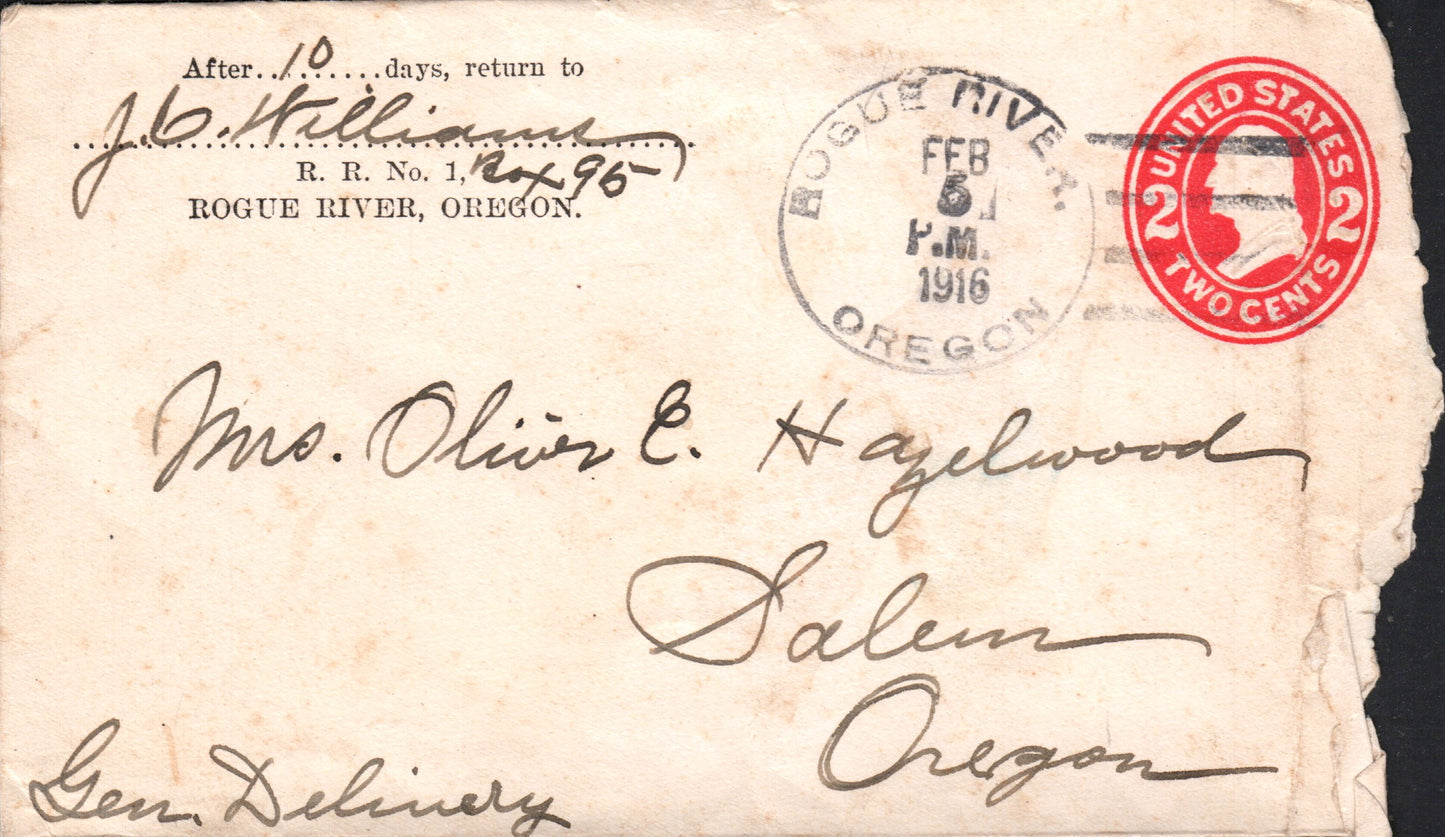 After..10.....days, return to
J. C. Williams
R. R. No. 1, Box 95
ROGUE RIVER, OREGON.
ROGUE RIVER.
FEB
5
P.M.
1916
OREGON
UNITED STATES
2 2
TWO CENTS
Mrs. Oliver E. Hazelwood
Salem
Oregon
Gen. Delivery